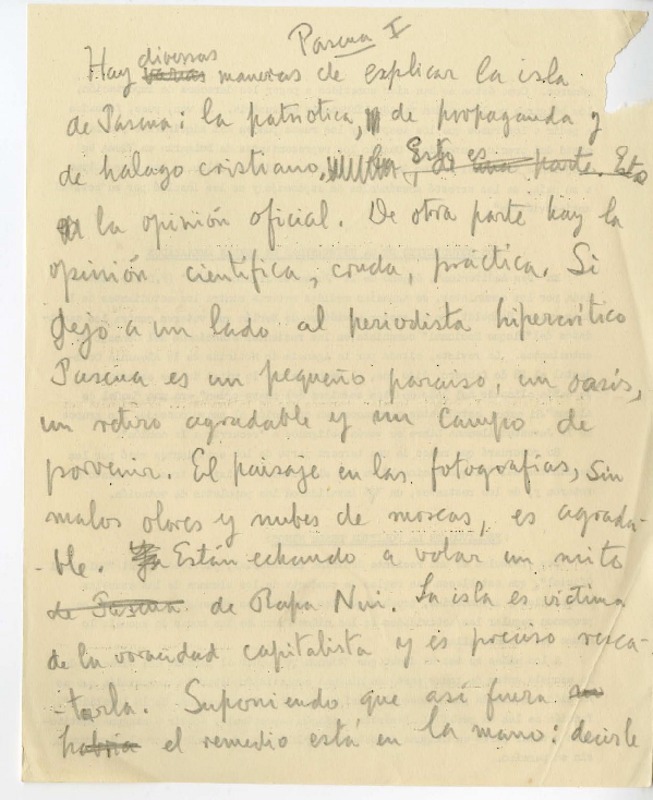 Pascua I
Hay diversas varias maneras de explicar la isla
de Pascua: la patriotica, de propaganda y
de halago cristiano. Esto es una parte. Esta
la opinión oficial. De otra parte hay la
opinión científica, cruda, práctica. Si
dejo a un lado al periodista hipercrítico
Pascua es un pequeño paraiso, un oasis,
un retiro agradable y un campo de
porvenir. El paisaje en las fotografías, sin
malos olores y nubes de moscas, es agrada-
-ble. Ya Están echando a volar un mito
de Pascua de Rapa Nui. La isla es víctima
de la voracidad capitalista y es preciso resca-
-tarla. Suponiendo que así fuera
habria el remedio está en la mano: decirle